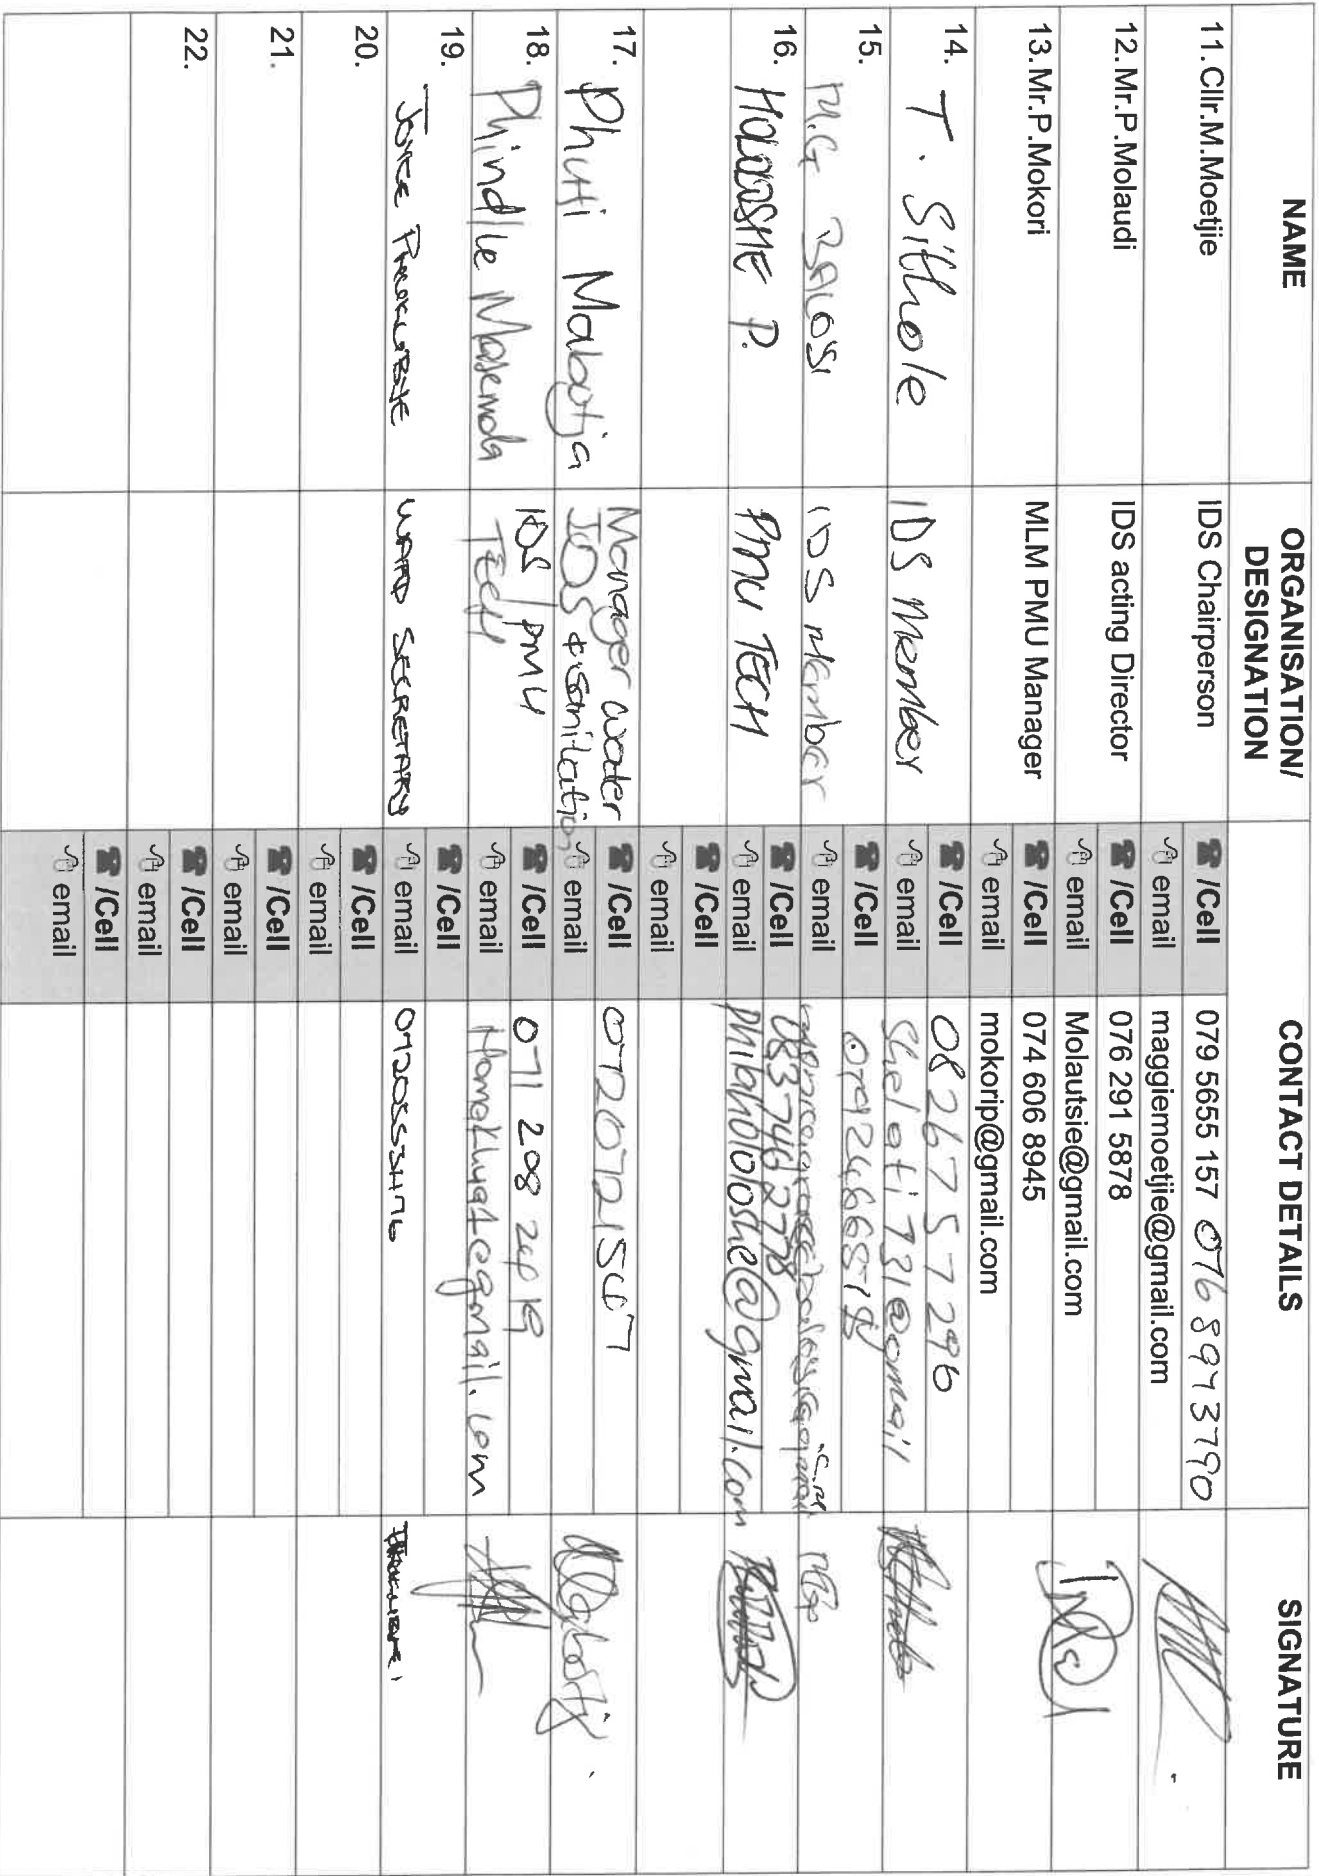 NAME
ORGANISATION/
DESIGNATION
CONTACT DETAILS
SIGNATURE
11.Cllr.M.Moetjie
IDS Chairperson
/Cell
079 5655 157 076 8943790
email
maggiemoetjie@gmail.com
12.Mr.P.Molaudi
IDS acting Director
/Cell
076 291 5878
email
Molautsie@gmail.com
13.Mr.P.Mokori
MLM PMU Manager
/Cell
074 606 8945
email
mokorip@gmail.com
14. T. Sithole
IDS Member
/Cell
0826757296
email
15. M.G BALOSI
IDS Member
/Cell
email
16. HOLOOSHE P.
PMU TECH
/Cell
083 746 2778
email
phibaholoshe@gmail.com
/Cell
email
17. Phuti Mabotja
Manager water
IDS & sanitation
/Cell
email
18. Phindile Masemola
IDS/PMU
TECH
/Cell
071 208 2419
email
19. JOYCE
WARD SECRETARY
/Cell
email
20.
/Cell
email
21.
/Cell
email
22.
/Cell
email
/Cell
email